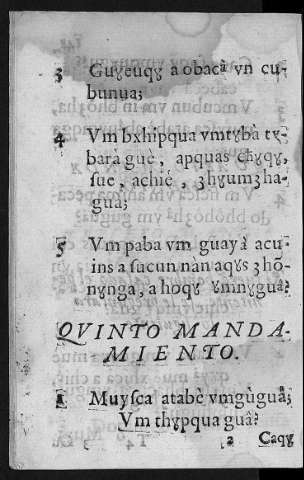 3 Guɣeuqɣ a obacâ vn cu-
bunua;
4 Vm bxhipqua vmtɣbà tɣ-
bara guè, apquas chɣqɣ,
sue, achié, ʒhɣumʒha-
gua;
5 Vm paba vm guayâ acu
ins a sucun nàn aqɣs ʒhō-
nɣnga, a hoqɣ ɣmnɣguâ?
QVINTO MANDA-
MIENTO.
1 Muysca atabè vmgùguâ;
Vm thɣpqua guâ?
2 Caqɣ